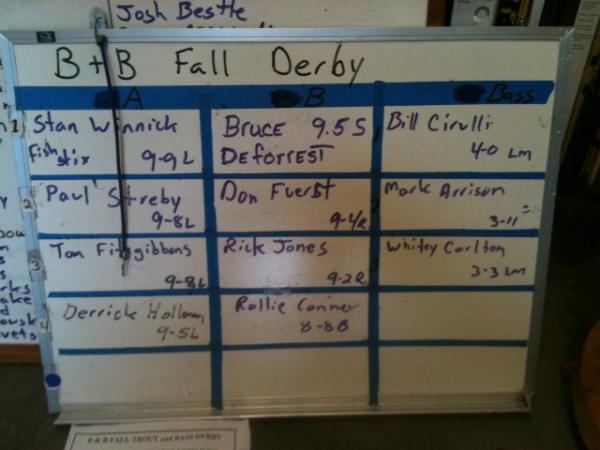 Josh Bestle
B+B Fall Derby
A B Bass
1
Stan Winnick
Fish stix 9-9L
Bruce 9.5 S
DeForrest
1
Bill Cirulli
4-0 LM
2
Paul Streby
9-8L
Don Fuerst
9-4R
2
Mark Arrison
3-11
3
Tom Fitzgibbons
9-8L
Rick Jones
9-2R
3
Whitey Carlton
3-3 LM
4
Derrick Holloman
9-5L
Rollie Conner
8-8B
B & B FALL TROUT and BASS DERBY